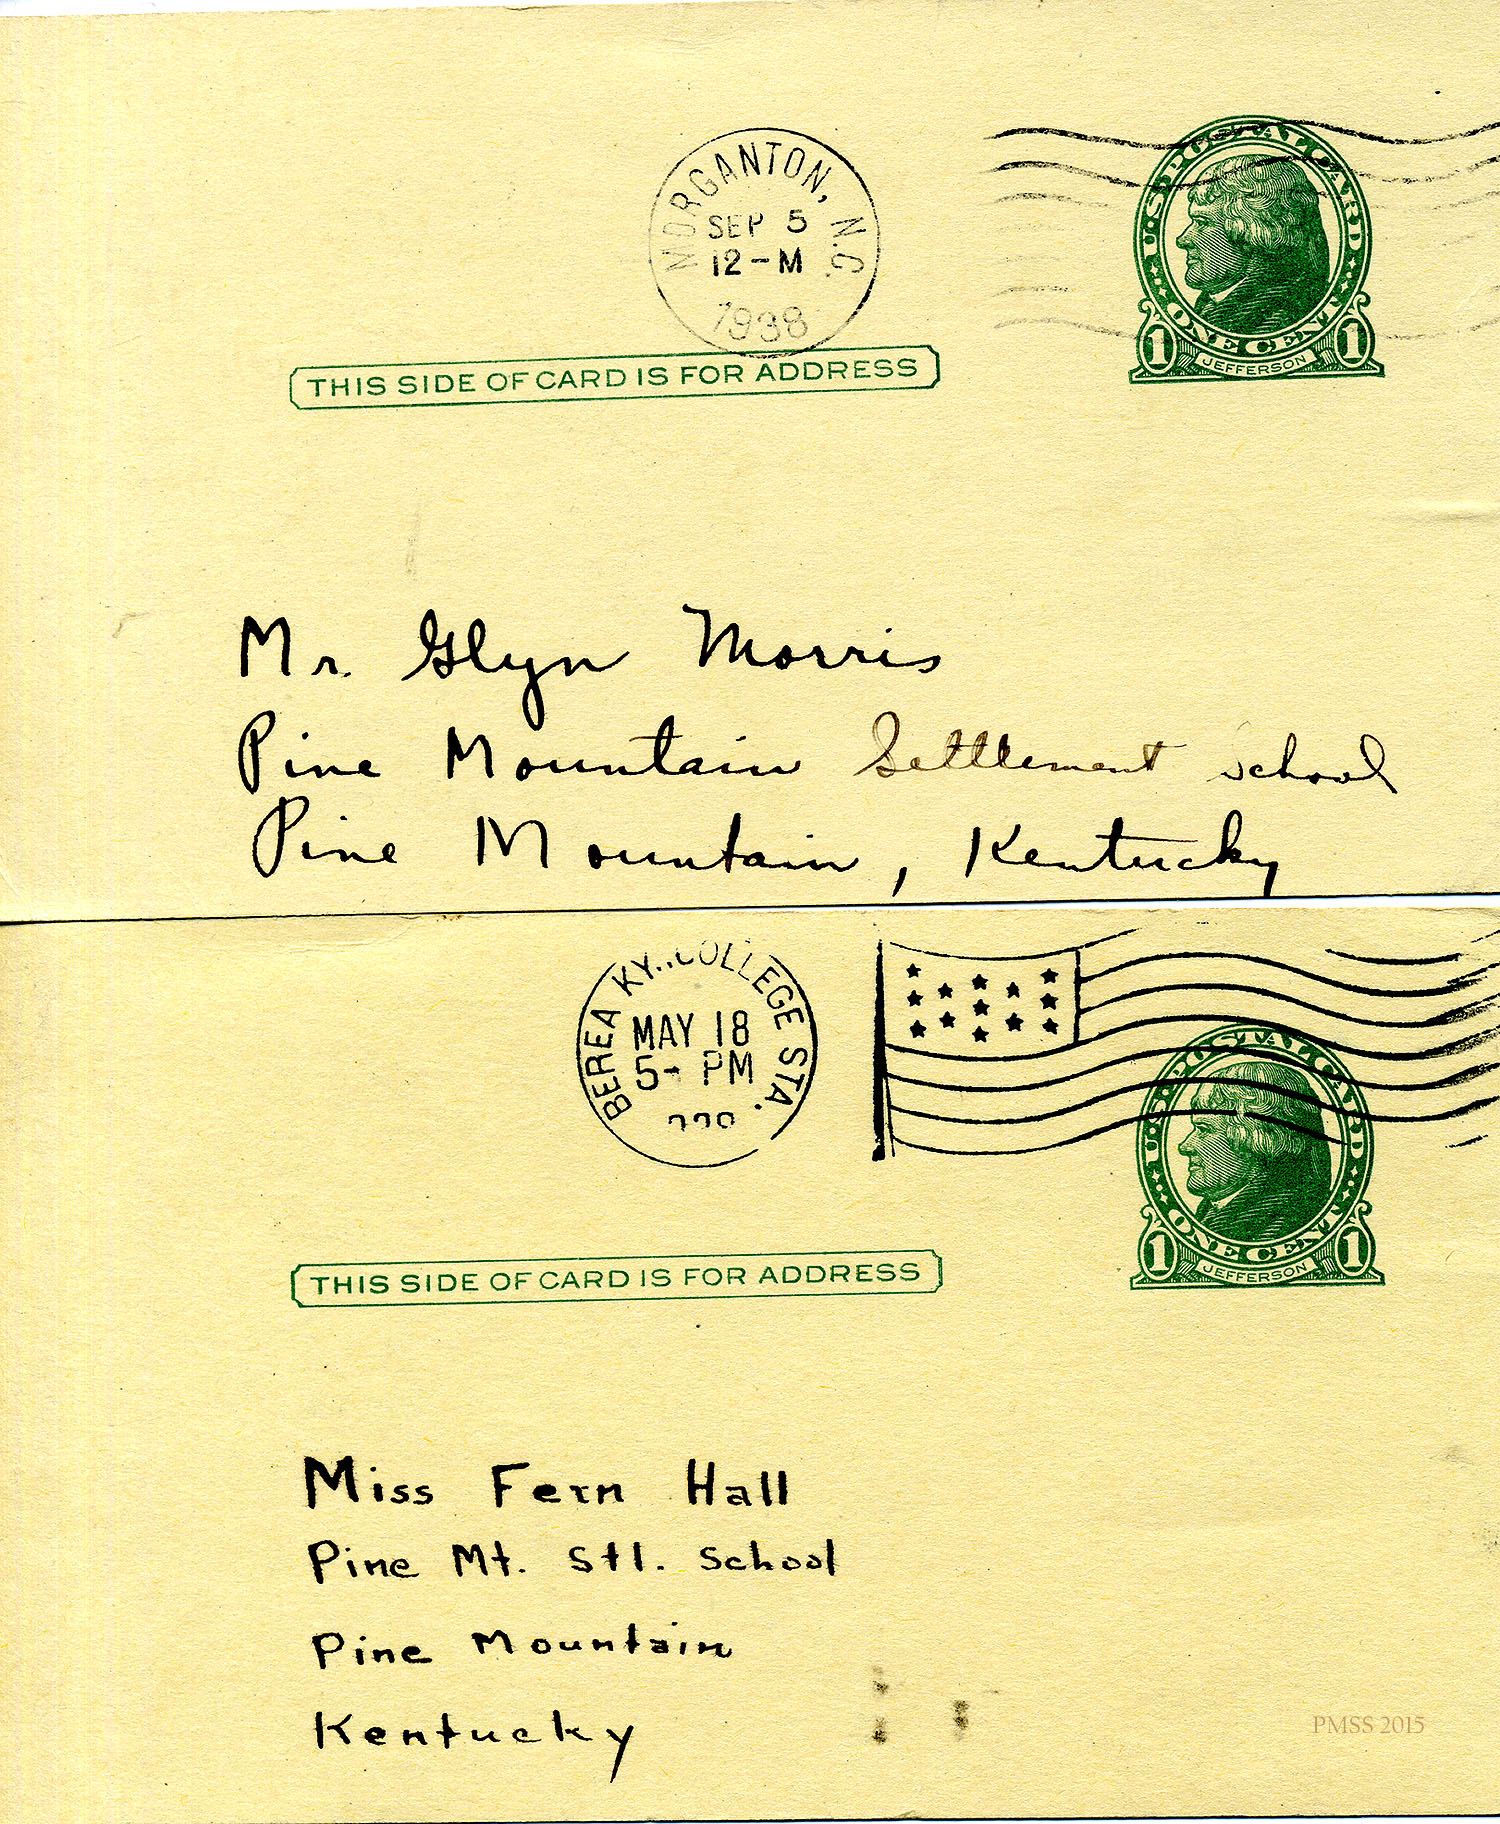 MORGANTON, N.C.
SEP 5
12-M
1938
U.S. POSTAL CARD
ONE CENT
1 JEFFERSON 1
THIS SIDE OF CARD IS FOR ADDRESS
Mr. Glyn Morris
Pine Mountain Settlement School
Pine Mountain, Kentucky
BEREA KY., COLLEGE STA.
MAY 18
5- PM
U.S. POSTAL CARD
ONE CENT
1 JEFFERSON 1
THIS SIDE OF CARD IS FOR ADDRESS
Miss Fern Hall
Pine Mt. Stl. School
Pine Mountain
Kentucky
PMSS 2015